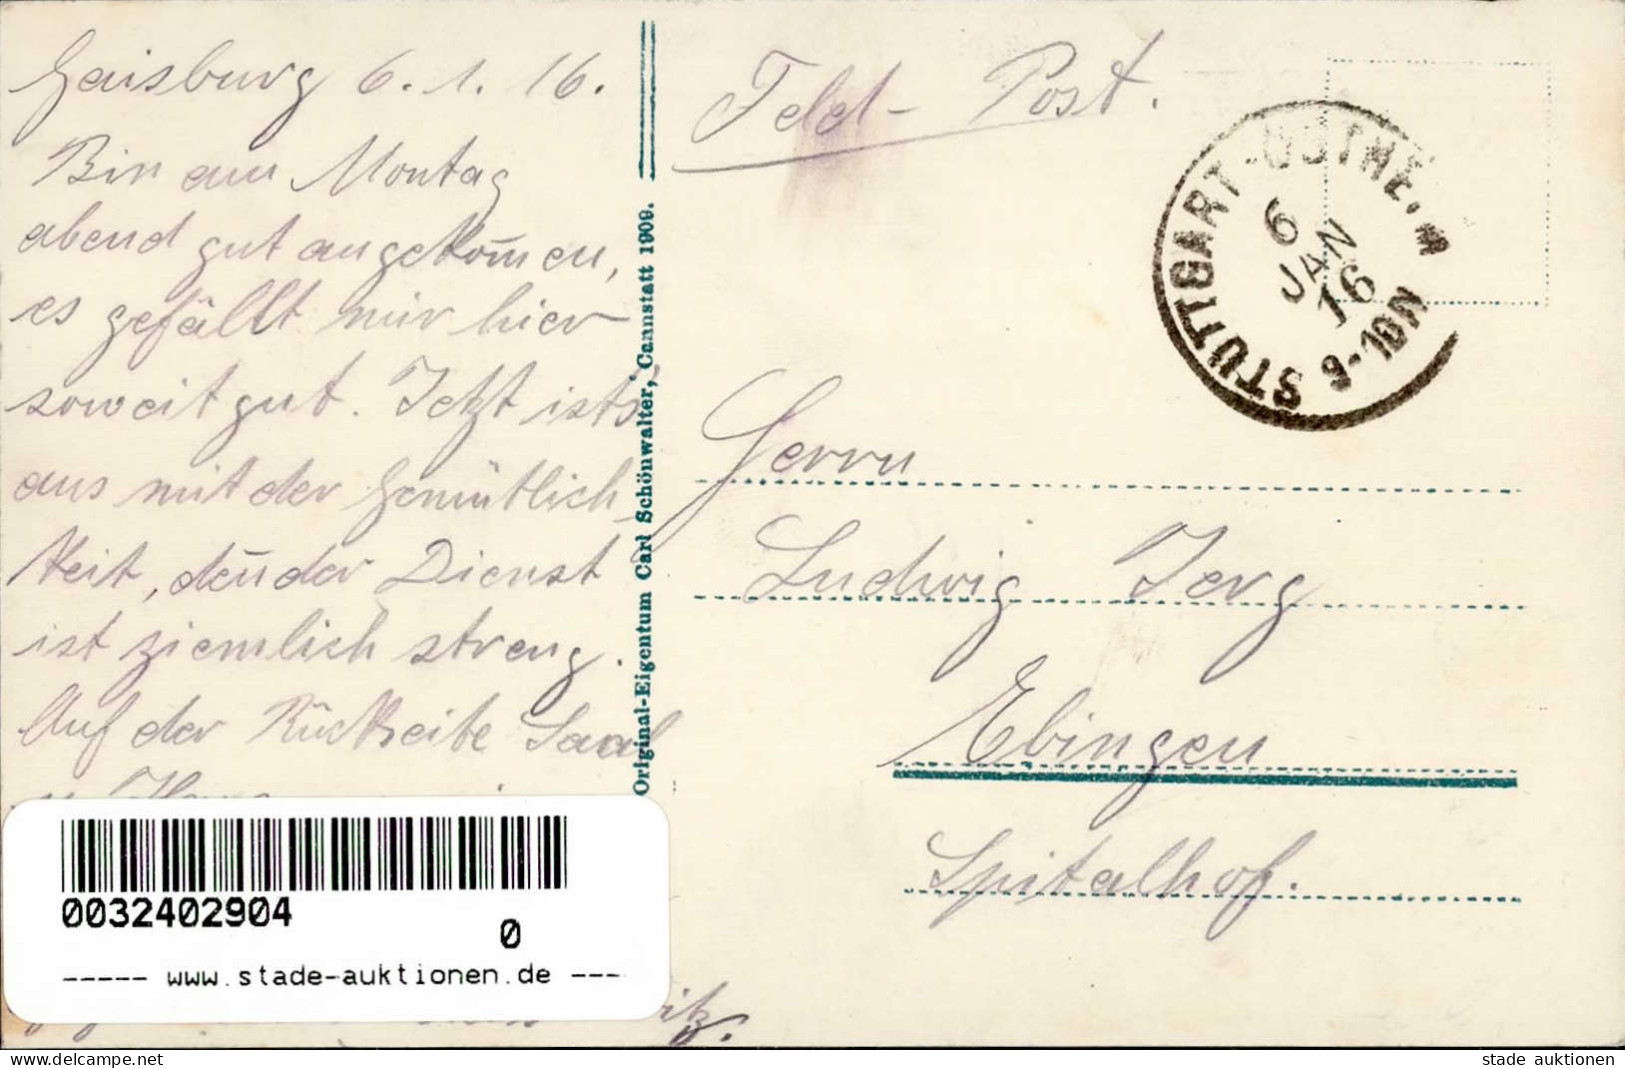 Gaisburg 6.1.16.
Bin am Montag
abend gut angekom̄en,
es gefällt mir hier
soweit gut. Jetzt ists
aus mit der Gemütlich-
keit, den̄ der Dienst
ist ziemlich streng.
Auf der Rückseite Saal
Original-Eigentum Carl Schönwalter, Cannstatt 1909.
Feld-Post.
STUTTGART-OSTHEIM
6
JAN
16
9-10N
Herrn
Ludwig Jerg
Ebingen
Spitalhof.
0032402904
0
----- www.stade-auktionen.de ----
https://www.delcampe.net
stade auktionen